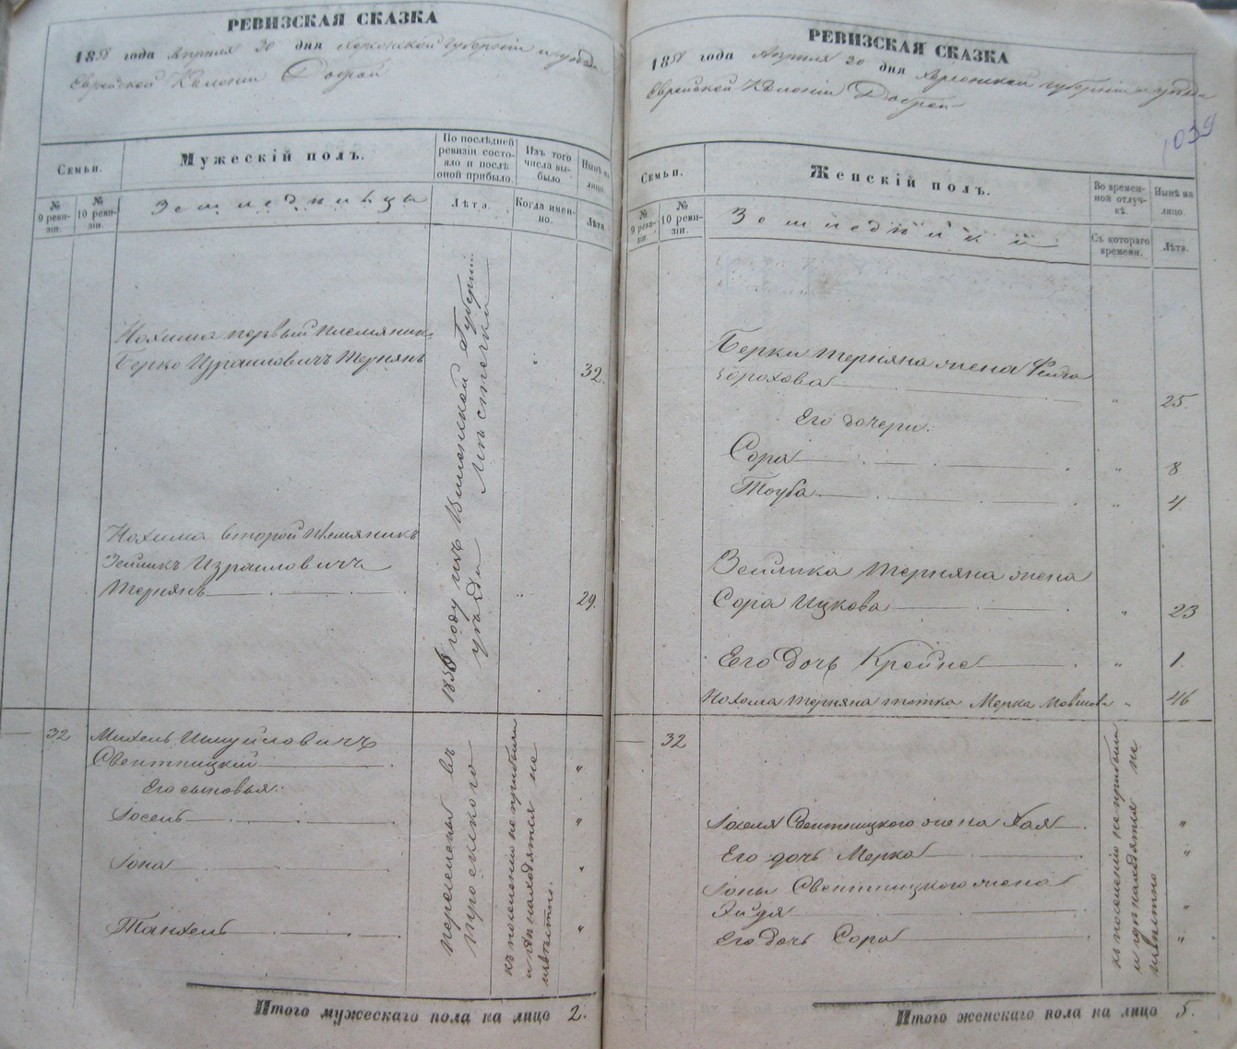 РЕВИЗСКАЯ СКАЗКА
1858 года Апреля 20 дня Херсонской губернии и уезда
Еврейской Колонии Доброй
Семьи.
Мужескій полъ.
По послѣдней ревизіи состояло и послѣ оной прибыло.
Изъ того числа выбыло.
Нынѣ на лицо.
№ 9 ревизіи.
№ 10 ревизіи.
Земледельцы
Лѣта.
Когда именно.
Лѣта.
Нохима первый племяник
Берко Израиловичъ Тернянъ
32.
Нохима второй племяникъ
Зейликъ Израиловичъ
Тернянъ
29.
году изъ Виленской Губерніи
уезда Местечка
32
Михель Шмуйловичъ
Свентицкій
Его сыновья:
Іосель
Іона
Танхель
переселены въ
къ поселению не прибыли
и где находятся не
известно.
Итого мужескаго пола на лицо 2.
РЕВИЗСКАЯ СКАЗКА
1858 года Апреля 20 дня Херсонской губернии и уезда
Еврейской Колонии Доброй
1039
Семьи.
Женскій полъ.
Во временной отлучкѣ.
Нынѣ на лицо.
№ 9 ревизіи.
№ 10 ревизіи.
Съ котораго времени.
Лѣта.
Берки Терняна жена Фейга
Борохова
25
Его дочери:
Сора
8
Тоуба
4
Зейлика Терняна жена
Сора Ицкова
23
Его дочь Крейне
1
Нохома Терняна тетка Мерка Мовшова
46
32
Іоселя Свентицкого жена Хая
Его дочь Мерка
Іоны Свентицкого жена
Его дочь Сора
къ поселению не прибыли
и где находятся не
известно
Итого женскаго пола на лицо 5.